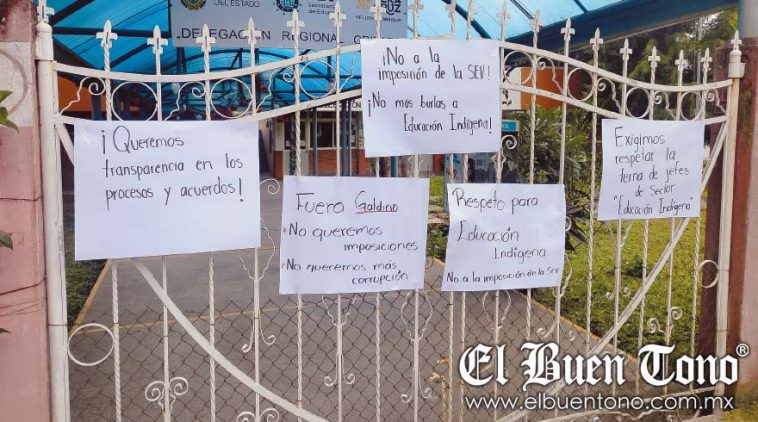 DEL ESTADO
DELEGACIÓN REGIONAL
¡No a la
imposición de la SEV!
¡No mas burlas a
Educación Indígena!
¡Queremos
transparencia en los
procesos y acuerdos!
Fuera Galdino
• No queremos
imposiciones
• No queremos más
corrupción
Respeto para
Educación
Indígena
No a la imposición de la Sev
Exigimos
respetar la
terna de jefes
de Sector
"Educación Indígena"
El Buen Tono®
www.elbuentono.com.mx